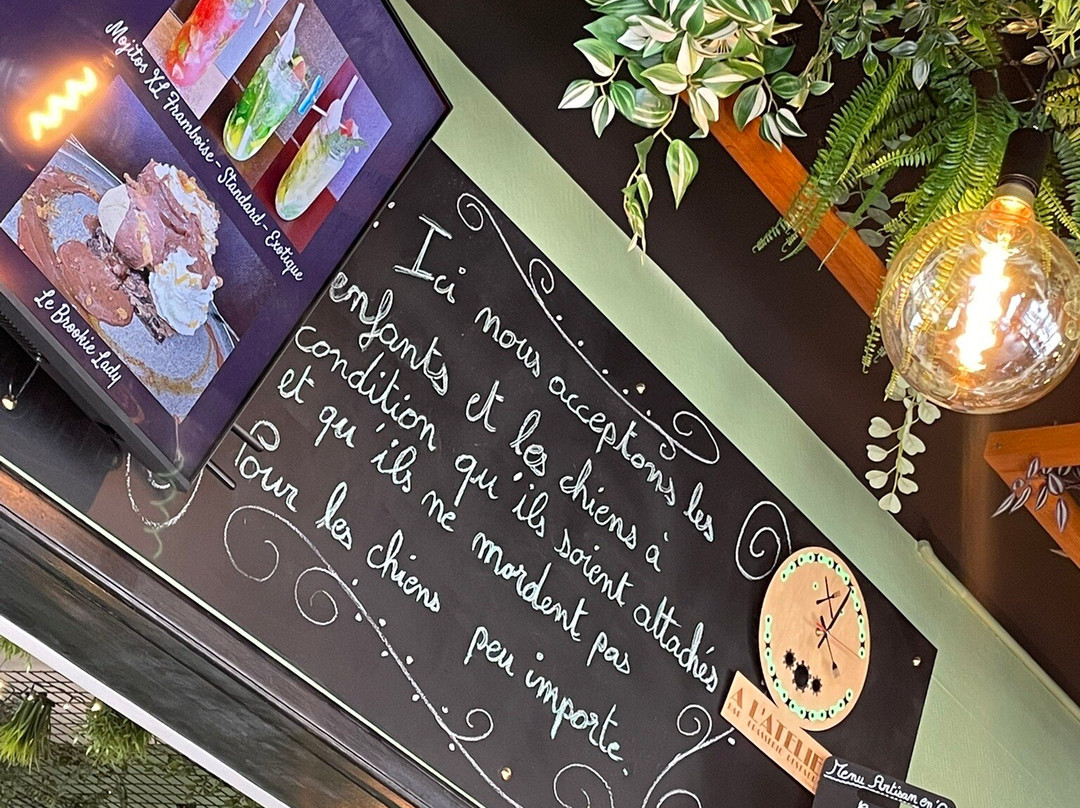 Mojitos XL Framboise - Standard - Exotique
Le Brookie Lady
Ici nous acceptons les
enfants et les chiens à
condition qu'ils soient attachés
et qu'ils ne mordent pas
Pour les chiens peu importe.
A L'ATELIE
BAR BRASSERIE RESTAUR
Menu Artisan